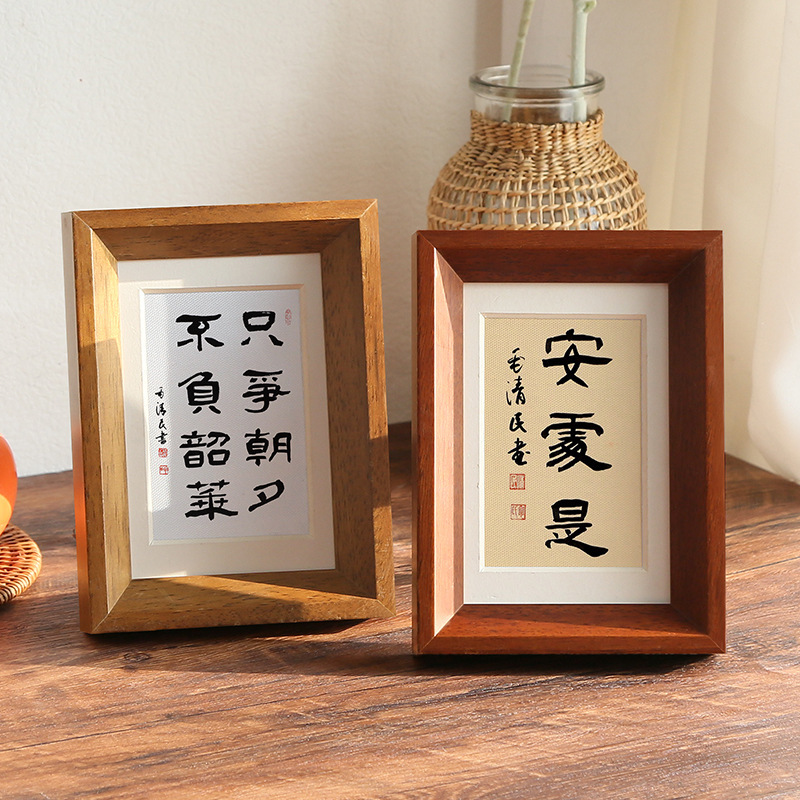 只爭朝夕
不負韶華
毛清民書
安處是
毛清民書